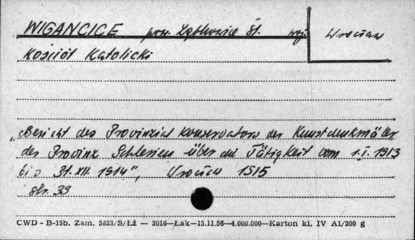 WIGANCICE pow. Ząbkowice Śl. woj. Wrocław
Kościół Katolicki
„Bericht des Provinzial Konservators der Kunstdenkmäler
der Provinz Schlesien über die Tätigkeit vom 1.I.1913
bis 31.XII.1914", Wrocław 1915
str. 33
CWD - B-15b. Zam. 5823/S/ŁŻ — 3016—Łak—15.11.56—4.000.000—Karton kl. IV A1/200 g